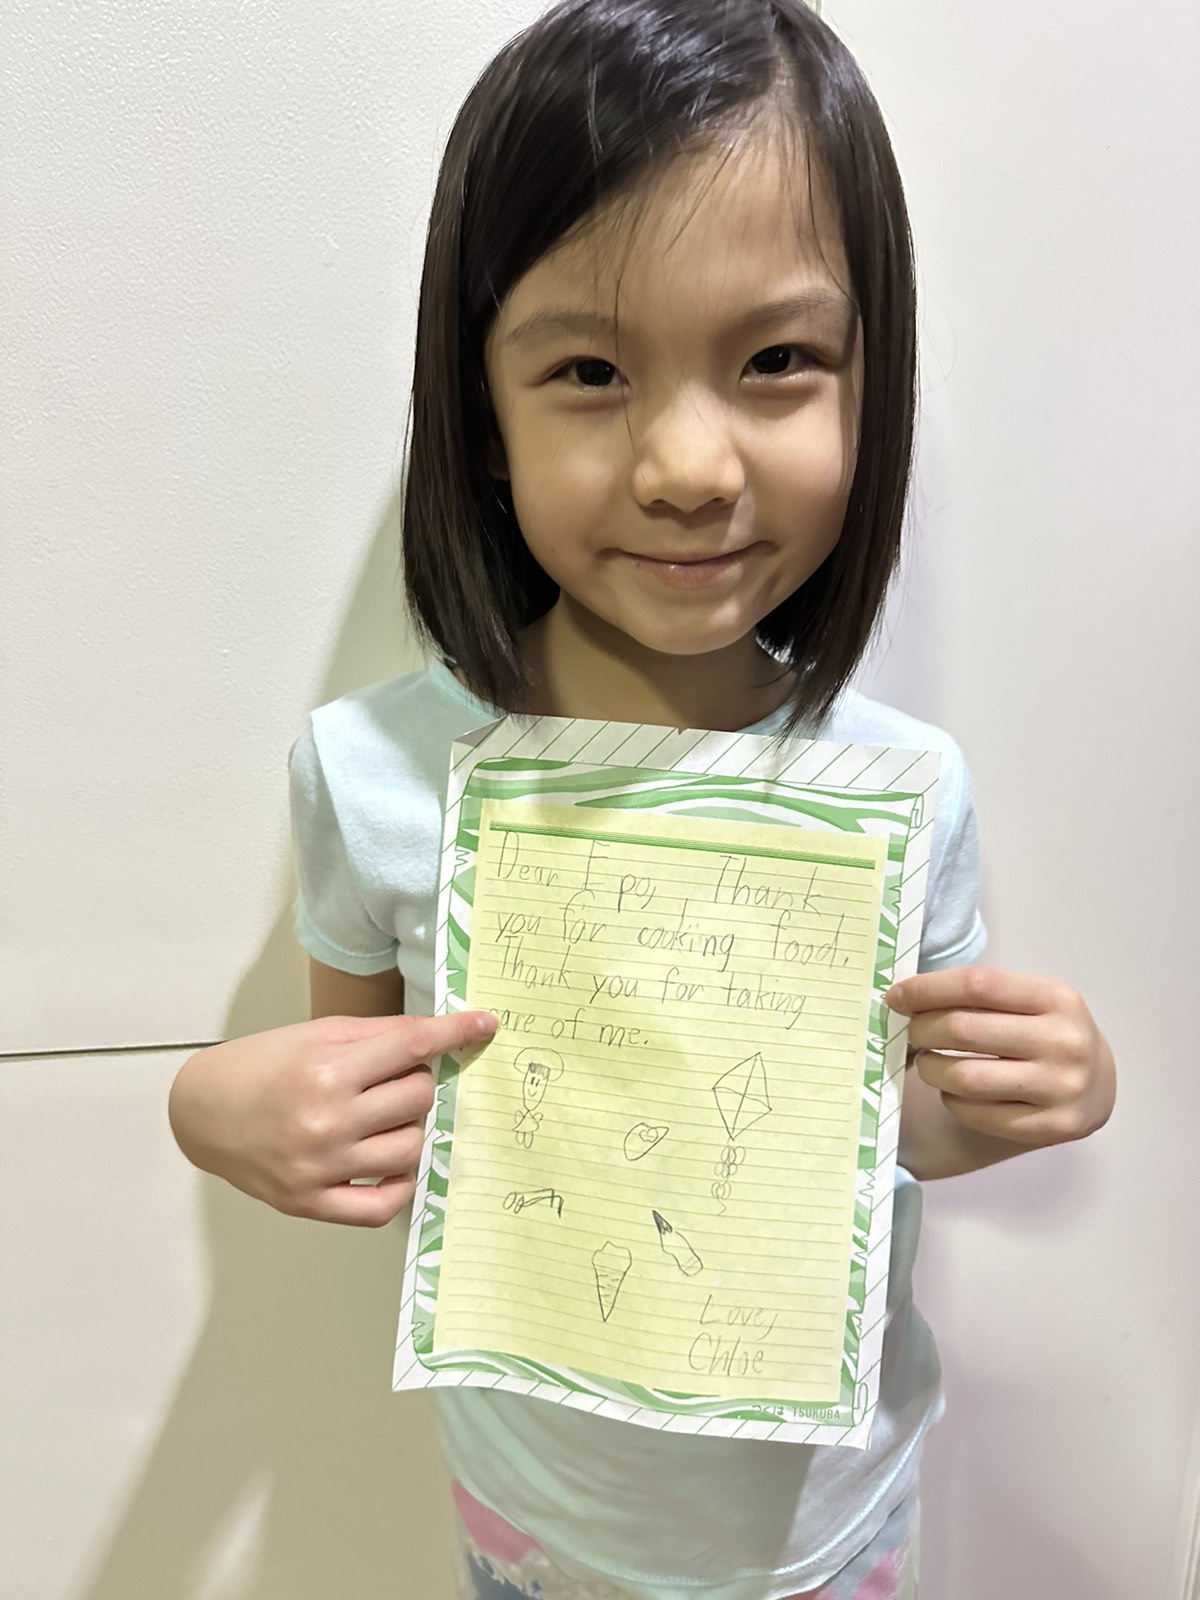 Dear Epo, Thank
you for cooking food.
Thank you for taking
care of me.
Love,
Chloe
つくば TSUKUBA